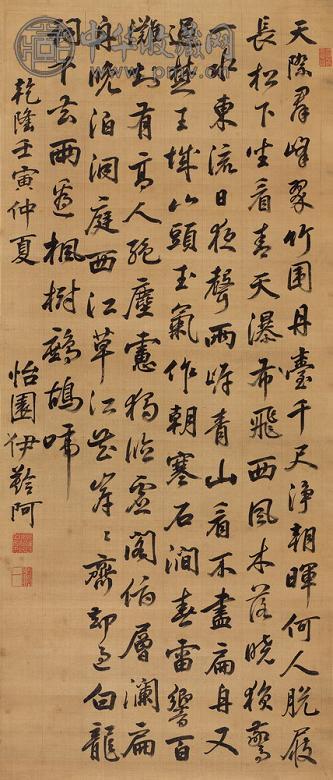 天際群峰翠竹圍丹臺千尺淨朝暉何人脫屐
長松下坐看青天瀑布飛西風木落曉猿驚
一水東流日夜聲兩岸青山看不盡扁舟又
過楚王城山頭玉氣作朝寒石澗春雷響百
灘却有高人絕塵慮獨臨虛閣俯層瀾扁
舟晚泊洞庭西江草江花岸〻齊却過白龍
祠下去兩邊楓樹鷓鴣啼
乾隆壬寅仲夏
怡園伊齡阿
中华收藏网